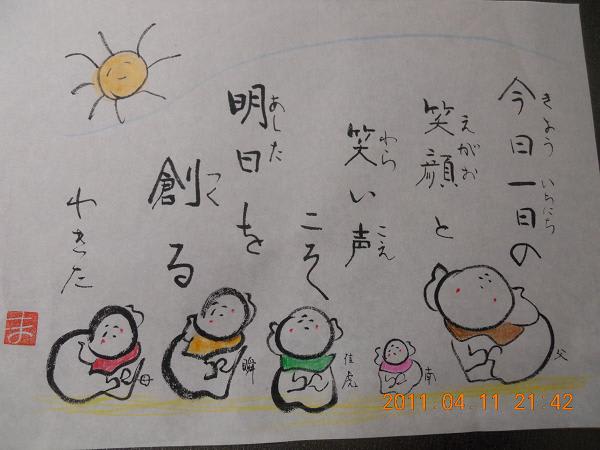 今日一日の
きょう いちにち
笑顔と
えがお
笑い声
わら こえ
こそ
明日を
あした
創る
つく
わきた
ま
父
南
佳虎
瞬
母
2011.04.11 21:42